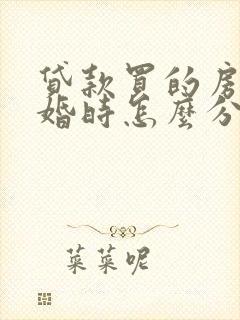 貸款買的房
婚時怎麼分
菜菜呢